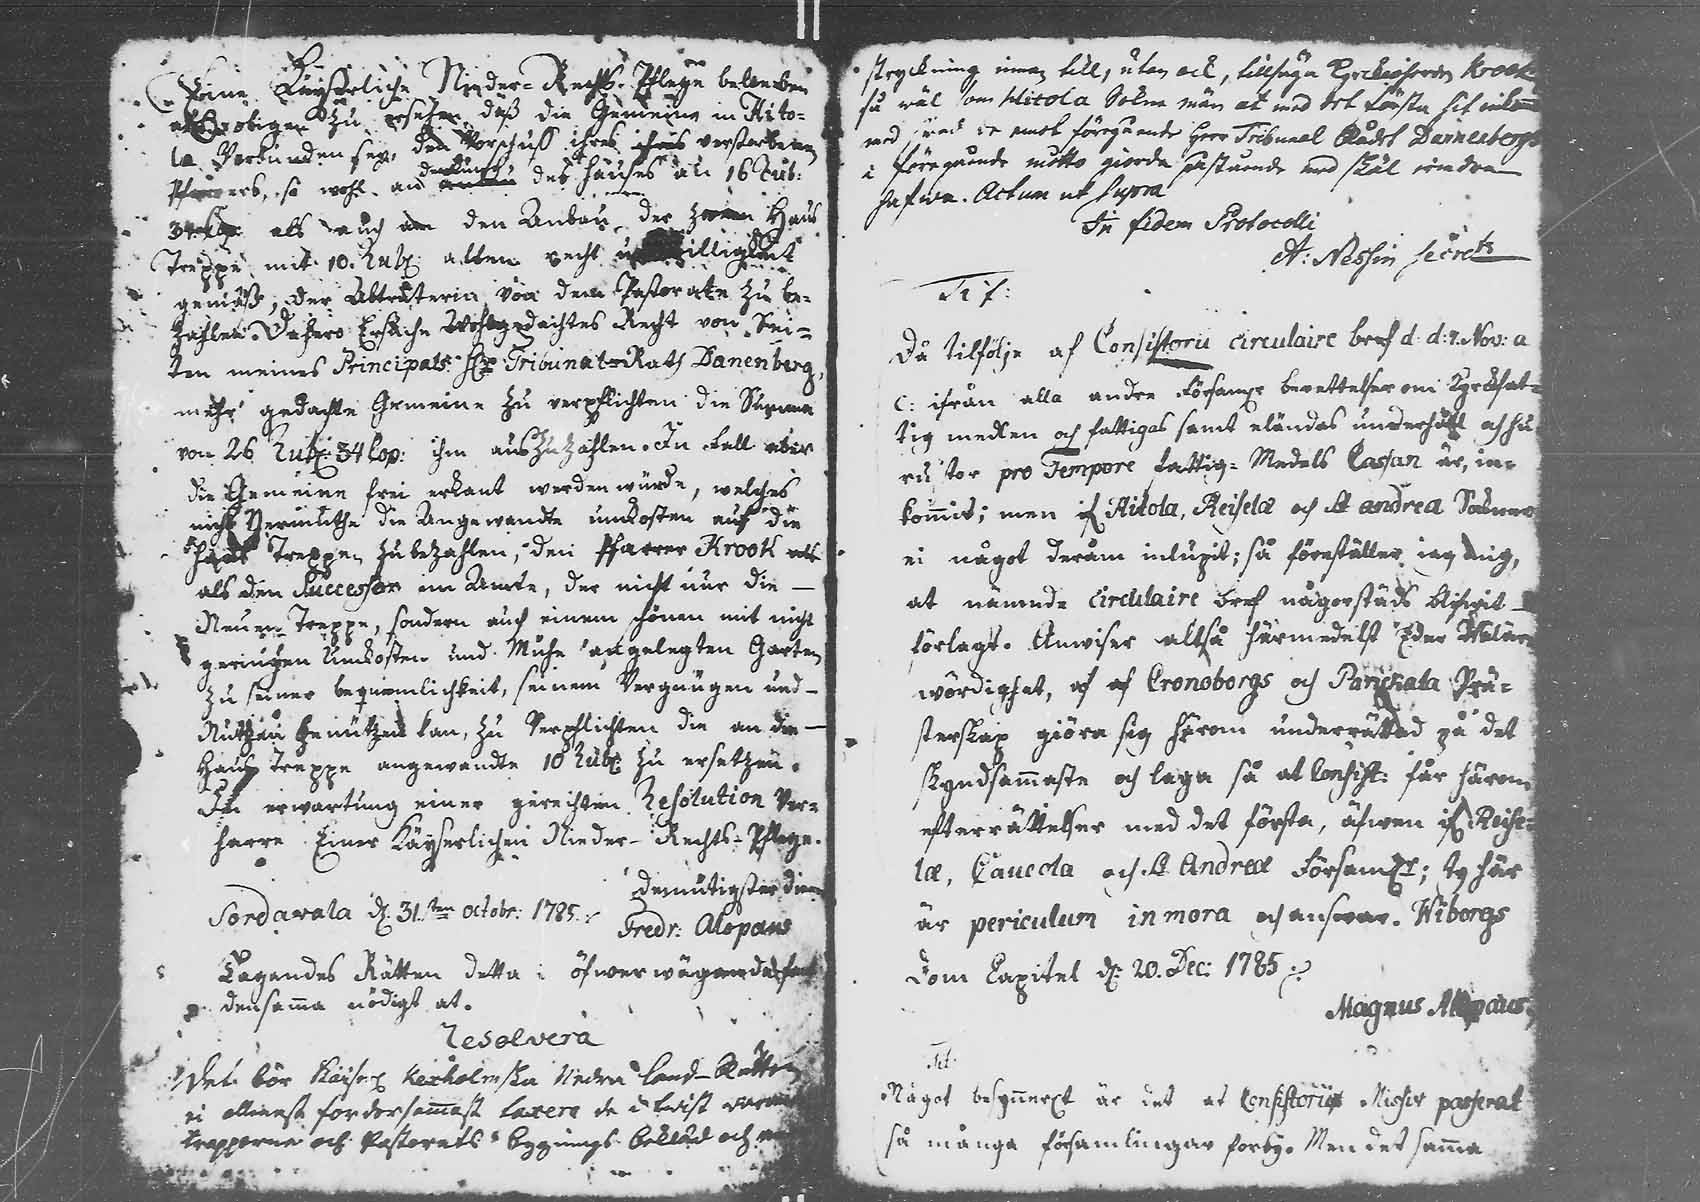 Eine Kayserliche Nieder-Rechts-Pflege belieben
obigen zu ersehen, daß die Gemeine in Hito-
la Verbunden sey, den Vorschuß ihres verstorbenen
Pfarrers, so wohl an des Hauses an 16 Rub:
34 Cop: als auch den Anbau der Haus
Treppe mit 10. Rub: allen recht billigkeit
gemäß, der von dem Pastorate zu be-
zahlen. Dahero Ersuche Wohlgedachtes Recht von Sei-
ten meines Principals H: Tribunal-Rath Danenberg,
mehr gedachte Gemeine zu verpflichten die Summa
von 26 Rub: 34 Cop: ihm auszuzahlen. In Fall aber
die Gemeine frei erkant werden würde, welches
nicht Vermuthe die Angewandte unkosten auf die
Haus Treppen zu bezahlen, den Pfarrer Krook als
als den Successor im Amte, der nicht nur die
Neuen Treppe, sondern auch einem schönen mit nicht
geringen Unkosten und Mühe angelegten Garten
zu seiner bequemlichkeit, seinem Vergnügen und
Nutzen benutzen kan, zu Verpflichten die an die
Haus Treppe angewandte 10 Rub: zu ersetzen.
In erwartung einer gerechten Resolution Ver-
harre Einer Kayserlichen Nieder-Rechts-Pflege.
Demütigster
Sordavala d: 31.sten octobr: 1785.
Fredr: Alopæus
Tagandes Rätten detta i öfwerwägande
densamma nödigt at.
Resolvera
Det bör Kexholmska Nedra Land-Rätten
ei allenast fordersammast laxera de i twist
trapporne och Pastorats bygnings och
stryckning innan till, utan ock, tillsäga Kyrckioherden Krook
så wäl som Hitola Sokne män at med det första sit
med, emot föregående Herr Tribunal Rådet Dannenbergs
i föregående måtto giorde påstående med skäl
hafwa. Actum ut Supra
In fidem Protocolli
A: Nessin Secrets
Tit:
Då tilfölje af Consistorii circulaire bref d: d: 7. Nov: a
c: ifrån alla andre Församl: berettelser om Kyrck fat-
tig medlen och fattigas samt eländas underhåll och hu
ru stor pro Tempore fattig-Medels Cassan är, in-
kommit; men if Hitola, Reiselæ och St andrea Soknar
ei något derom inlupit; så föreställer iag mig,
at nämnde circulaire bref någorstäds blifwit
förlagt. Anwiser altså härmedelst Eder Wälär-
wördighet, af Cronoborgs och Parickala Prä-
sterskap giöra sig härom underrättad på det
skyndsammaste och laga så at Consist: får härom
efterrättelser med det första, äfwen if Reise-
læ, Caucola och St Andreæ Församl:; ty här
är periculum in mora och answar. Wiborgs
Dom Capitel d: 20. Dec: 1785.
Magnus Alopæus.
Tit:
Något besynnerligt är det at Consistorii Missiv passerat
så många församlingar forby. Men det samma